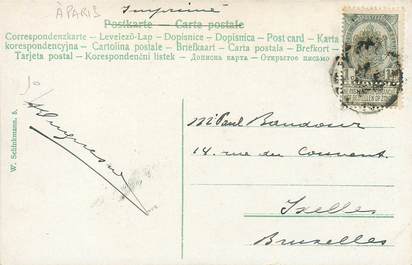 À PARIS
Imprimé
Postkarte — Carta postale
Correspondenzkarte — Levelező-Lap — Dopisnice — Dopisnica — Post card — Karta
korespondencyjna — Cartolina postale — Briefkaart — Carta postala — Brefkort —
Tarjeta postal — Korespondenční lístek — Дописна карта — Открытое письмо
Mr Paul Baudour
14. rue du Couvent
Ixelles
Bruxelles
W. Schinkmann. b.